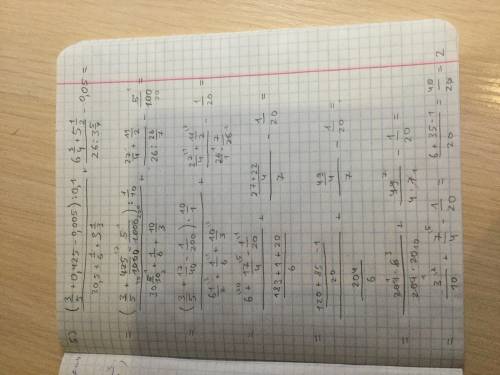 5) ((3/5 + 0,425 - 0,005) : 0,1)/(30,5 + 1/6 + 3 1/3) + (6 3/4 + 5 1/2)/(26 : 3 5/7) - 0,05 =
= ((3/5 + 425/1000 - 5/1000) : 1/10)/(30 5/10 + 1/6 + 10/3) + (27/4 + 11/2)/(26 : 26/7) - 5/100 =
= ((3/5 + 17/40 - 1/200) · 10/1)/(61/2 + 1/6 + 10/3) + (27/4 + 11/2)/(26/1 · 7/26) - 1/20 =
= (6 + 17/4 - 1/20)/((183+1+20)/6) + ((27+22)/4)/7 - 1/20 =
= ((120+85-1)/20)/(204/6) + (49/4)/7 - 1/20 =
= (204 · 6)/(204 · 20) + 49/(4 · 7) - 1/20 =
= 3/10 + 7/4 - 1/20 = (6+35-1)/20 = 40/20 = 2